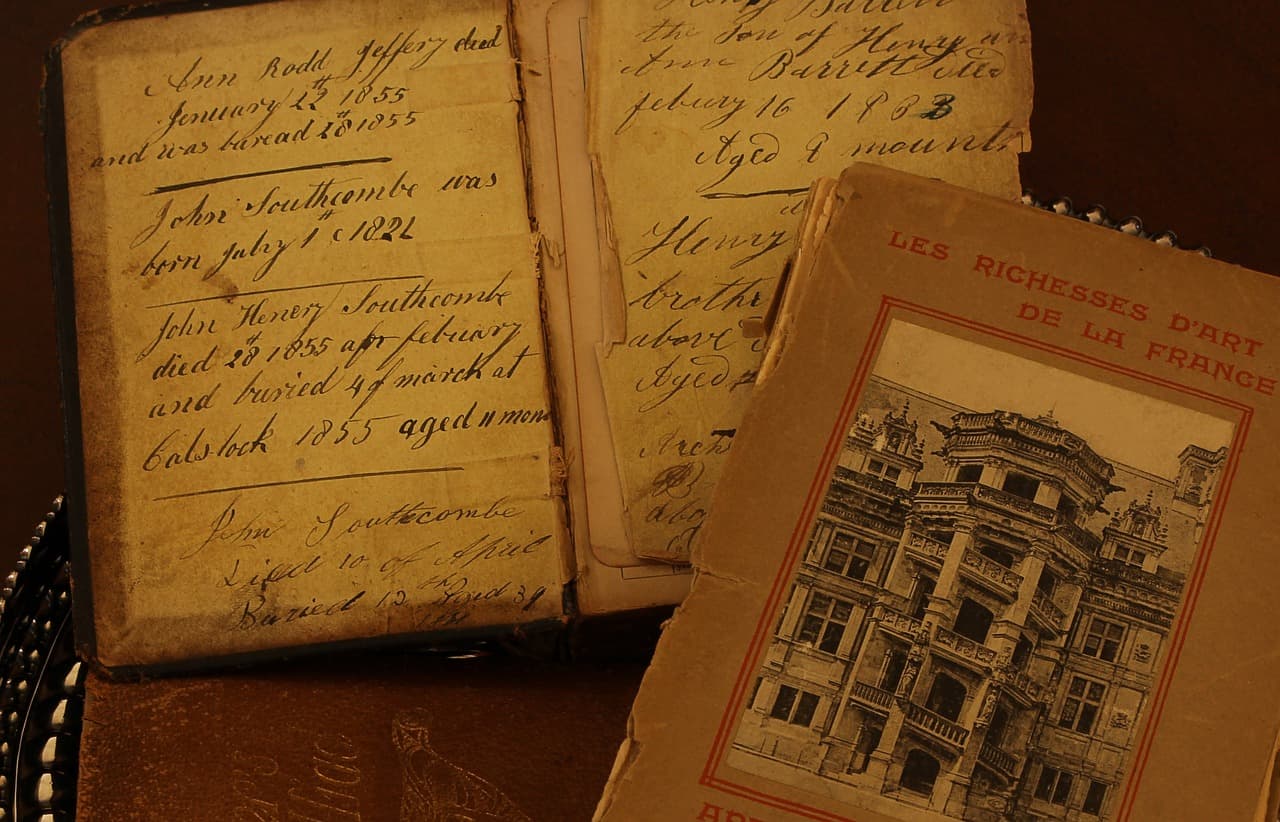 Ann Rodd Jeffery died
January 22th 1855
and was buread 28th 1855
John Southcombe was
born July 1th 1821
John Henery Southcombe
died 28th 1855 febuary
and buried 4 of march at
Calstock 1855 aged 11 mon
John Southcombe
Died 10 of April
Buried 13 Aged 39
Henry Barrett
the Son of Henry an
Ann Barrett died
febury 16 1883
Aged 8 mounts
Henry
brothe
above
Aged
LES RICHESSES D'ART
DE LA FRANCE